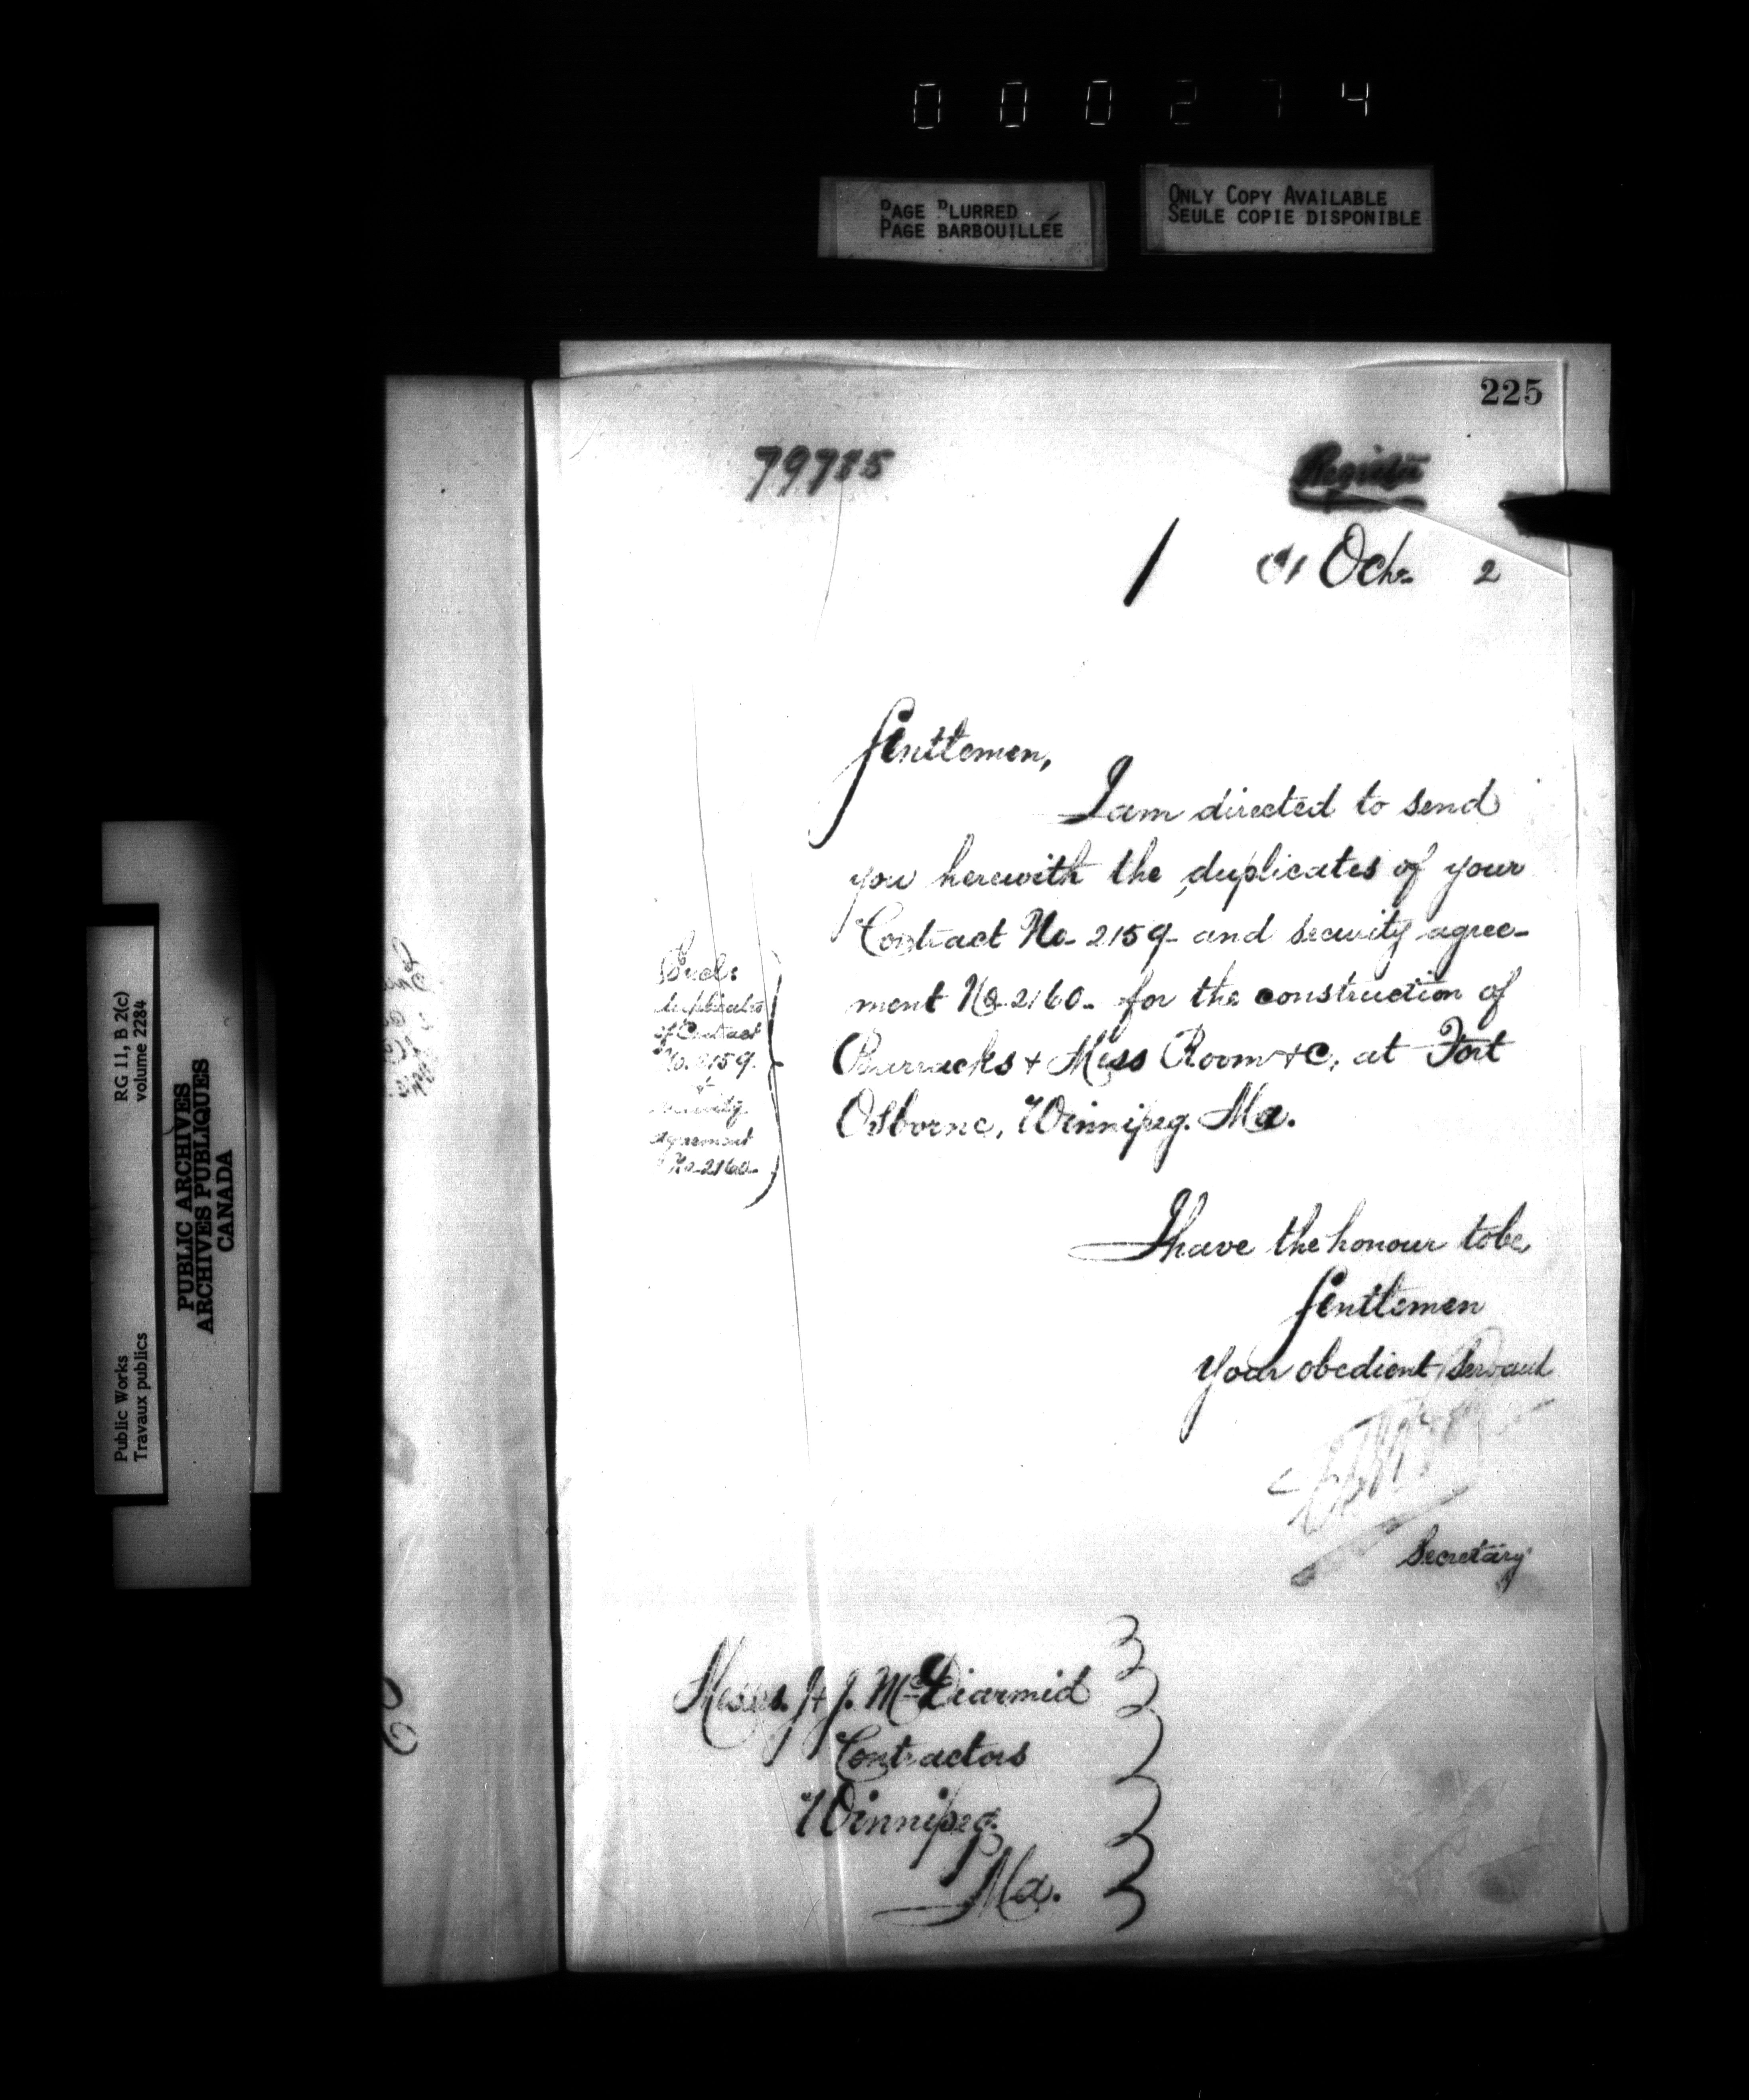 000274
PAGE BLURRED
PAGE BARBOUILLÉE
ONLY COPY AVAILABLE
SEULE COPIE DISPONIBLE
225
79785
Register
1 Octr. 2
Gentlemen,
I am directed to send
you herewith the duplicates of your
Contract No. 2159 and security agree-
ment No. 2160. for the construction of
Barracks & Mess Room &c. at Fort
Osborne, Winnipeg. Ma.
Encl:
duplicates
of Contract
No. 2159.
&
security
agreement
No. 2160.
I have the honour to be,
Gentlemen
Your obedient Servant
Secretary
Messrs. J & J. McDiarmid
Contractors
Winnipeg.
Ma.
RG 11, B 2(c)
volume 2284
Public Works
Travaux publics
PUBLIC ARCHIVES
ARCHIVES PUBLIQUES
CANADA